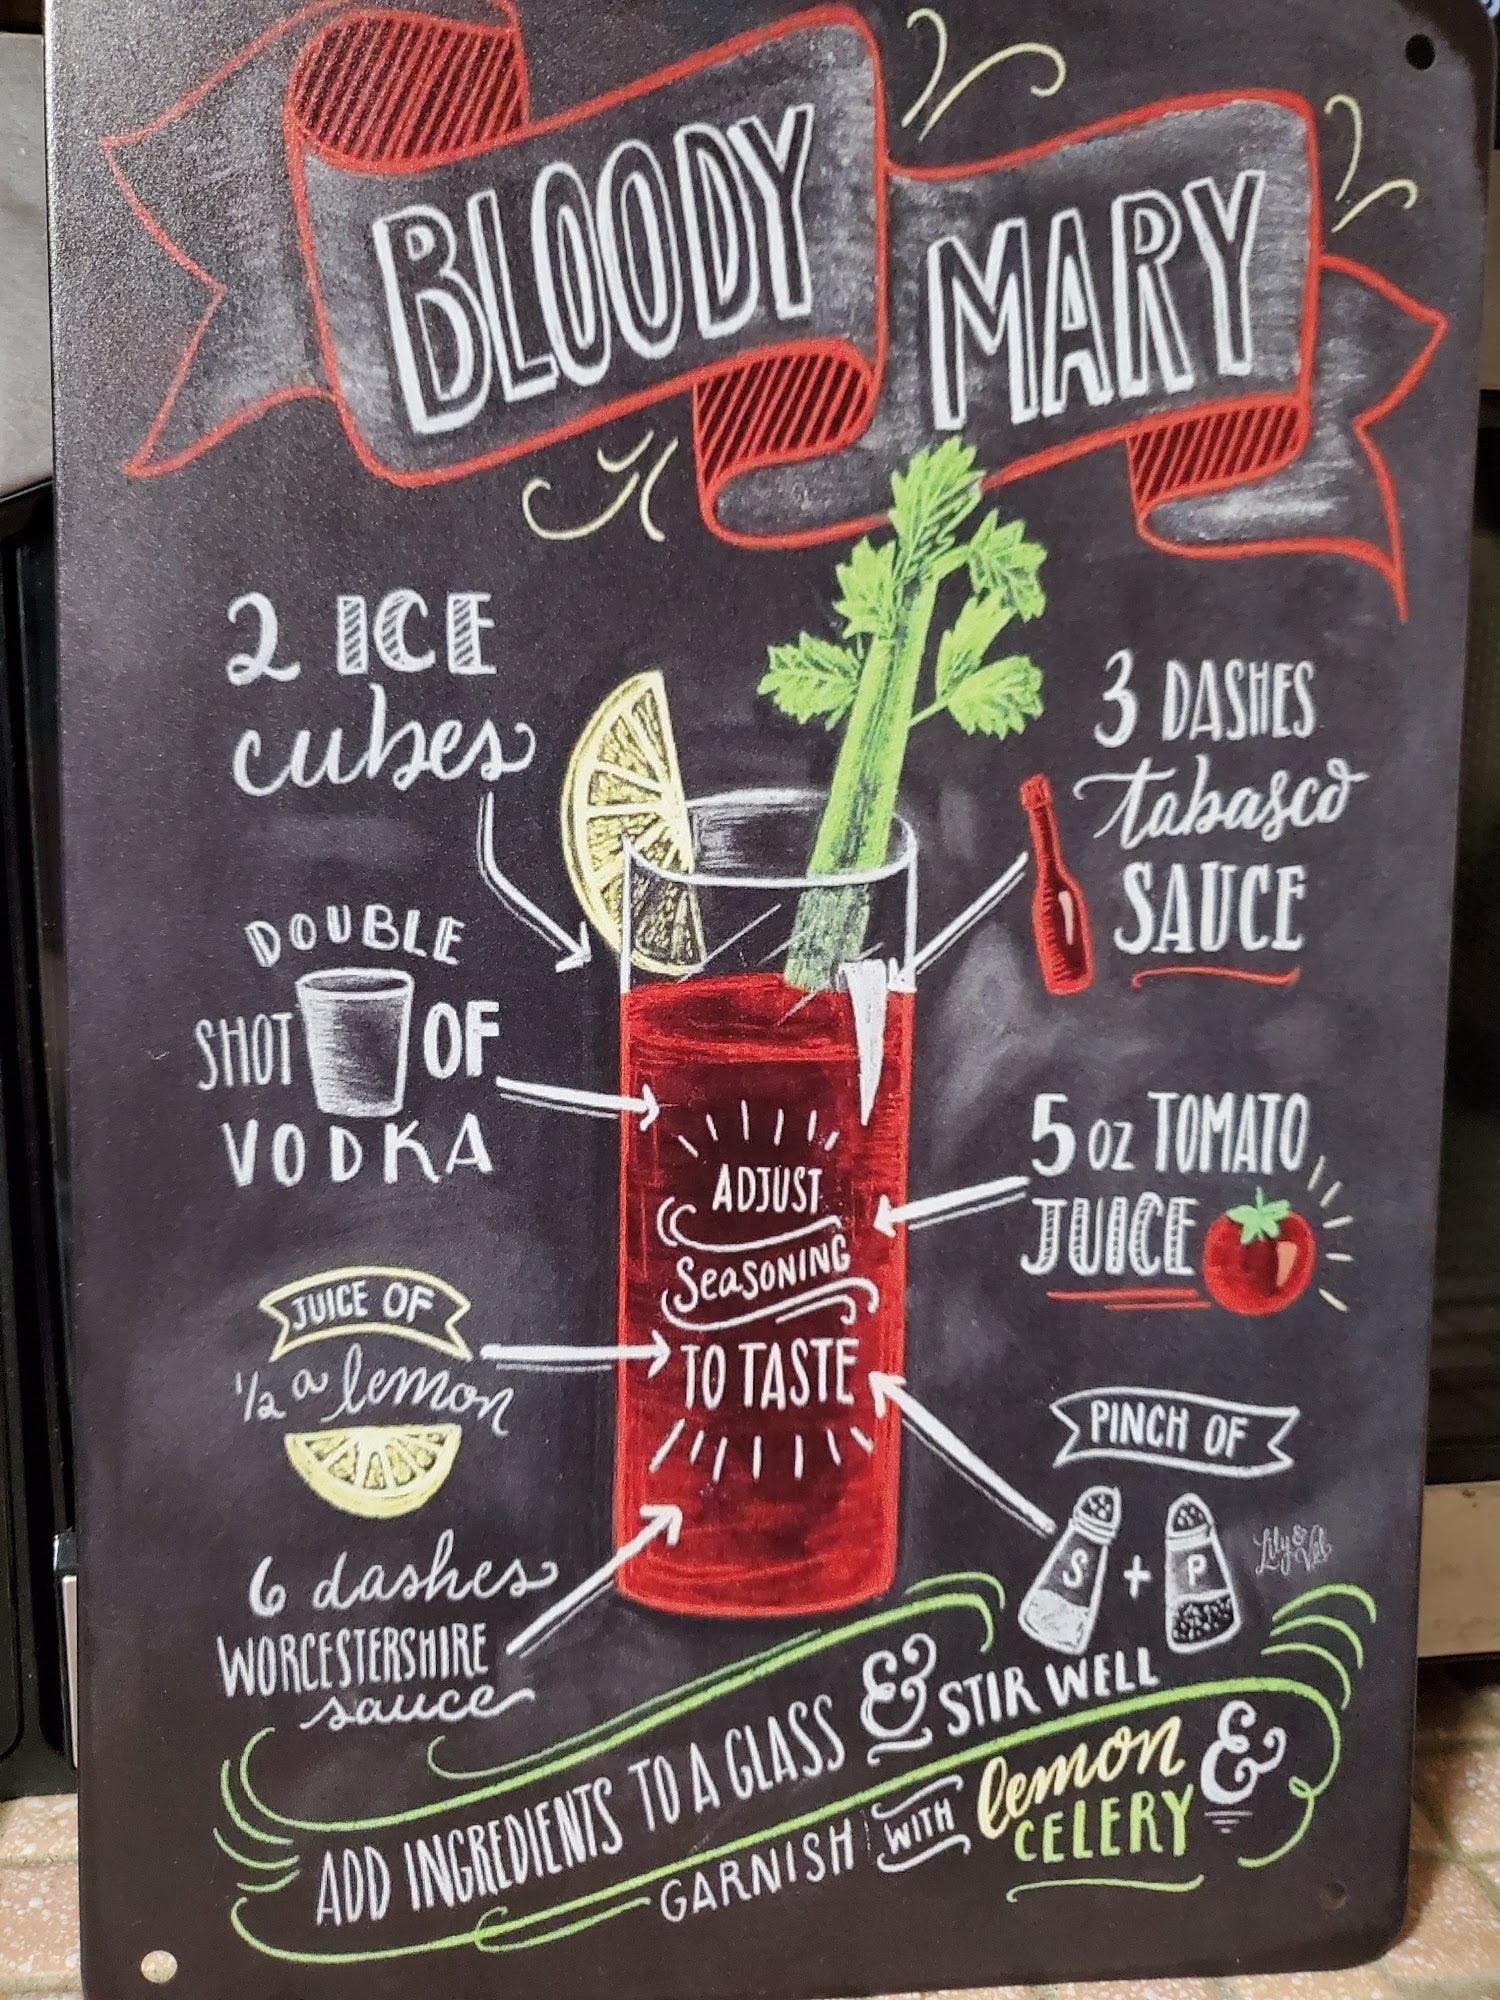 BLOODY MARY
2 ICE
cubes
DOUBLE
SHOT OF
VODKA
JUICE OF
1/2 a lemon
6 dashes
WORCESTERSHIRE
sauce
3 DASHES
tabasco
SAUCE
5 oz TOMATO
JUICE
PINCH OF
S + P
Lily & Val
ADJUST
SEASONING
TO TASTE
ADD INGREDIENTS TO A GLASS & STIR WELL
GARNISH WITH lemon &
CELERY